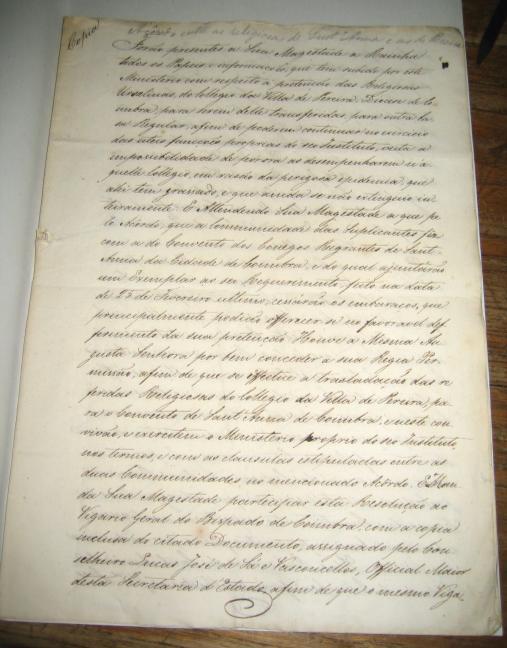 Copia
Acôrdo entre as religiosas de Sant'Anna e as de Pereira
Forão presentes a Sua Magestade a Rainha
todos os Papeis e informações, que tem subido por este
Ministerio com respeito á pretenção das Religiosas
Urselinas, do Collegio da Villa de Pereira, Diocese de Co-
imbra, para serem delle transferidas para outra Ca-
sa Regular, afim de poderem continuar no exercicio
das uteis funcções proprias do seo Instituto, visto a
impossibilidade de por ora as desempenharem n'a-
quelle Collegio, em rasão da perigosa epidemia, que
ahi tem grassado, e que ainda se não extinguio in-
teiramente. E Attendendo Sua Magestade a que pe-
lo Acôrdo, que a Communidade das Suplicantes fez
com a do Convento das Conegas Regrantes de Sant-
Anna da Cidade de Coimbra, e do qual ajuntárão
um Exemplar ao seo Requerimento feito na data
de 25 de Fevereiro ultimo, cessárão os embaraços, que
principalmente podião offerecer-se ao favoravel def-
ferimento da sua pretenção: Houve a Mesma Au-
gusta Senhora por bem conceder a sua Regia Per-
missão, afim de que se effectue a trasladação das re-
feridas Religiosas do Collegio da Villa de Pereira, pa-
ra o Convento de Sant'Anna de Coimbra, e neste con-
vivão, e exercitem o Ministerio proprio do seo Instituto,
nos termos, e com as clausulas estipuladas entre as
duas Communidades no mencionado Acôrdo. E Man-
da Sua Magestade participar esta Resolução ao
Vigario Geral do Bispado de Coimbra, com a copia
inclusa do citado Documento, assignado pelo Con-
selheiro Lucas José de Sá e Vasconcellos, Official Maior
desta Secretaria d'Estado, afim de que o mesmo Viga-